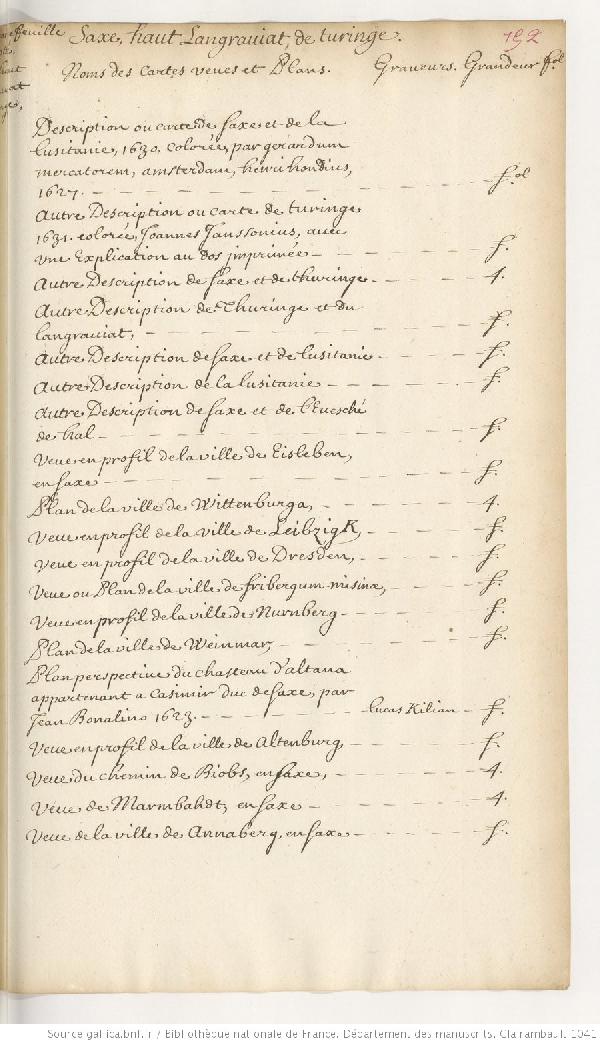 Saxe, haut Langraviat, de turinge. 192
Noms des Cartes veues et Plans. Graveurs. Grandeur fol
Description ou carte de saxe et de la
lusitanie, 1630. colorée, par gerardum
mercatorem, amsterdam, henri hondius,
1627. — f.ol
Autre Description ou carte de turinge
1631. colorée, Joannes Janssonius, avec
une Explication au dos jmprimée — f.
Autre Description de saxe et de thuringe — 4.
Autre Description de Thuringe et du
langraviat, — f.
Autre Description de saxe et de lusitanie — f.
Autre Description de la lusitanie — f.
Autre Description de saxe et de l'Evesché
de hal — f.
Veue en profil de la ville de Eisleben,
en saxe — f.
Plan de la ville de Wittenburga, — 4.
Veue en profil de la ville de LeibzigK, — f.
Veue en profil de la ville de Dresden, — f.
Veue ou Plan de la ville de fribergum misinæ, — f.
Veue en profil de la ville de Nurnberg — f.
Plan de la ville de Weinmar, — f.
Plan perspective du chasteau d'altana
appartenant a Casimir Duc de saxe, par
Jean Bonalino 1623. — lucas Kilian — f.
Veue en profil de la ville de Altenburg — f.
Veue du chemin de Biobs, en saxe, — 4.
Veue de Marmbahdt, en saxe — 4.
Veue de la ville de Annaberg, en saxe — f.
Source gallica.bnf.fr / Bibliothèque nationale de France. Département des manuscrits. Clairambault 1041